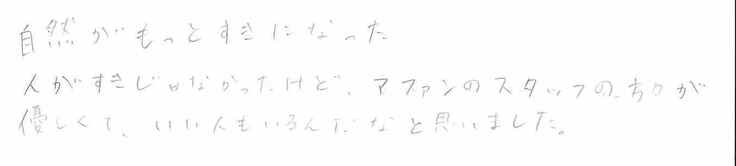 自然がもっとすきになった
人がすきじゃなかったけど、アファンのスタッフの方々が
優しくて、いい人もいるんだなと思いました。